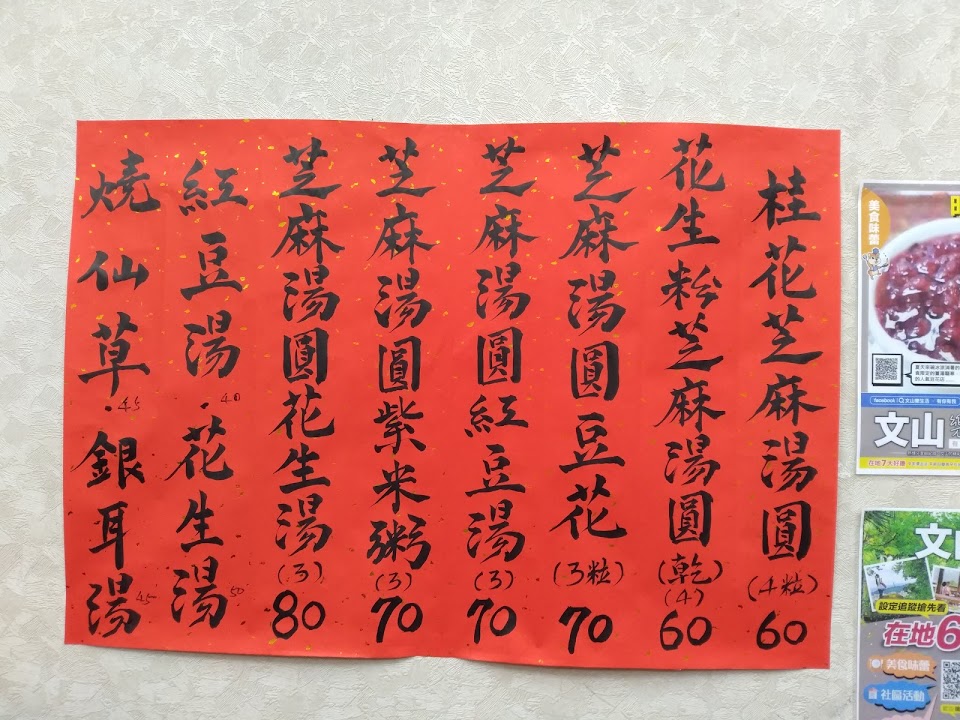 桂花芝麻湯圓(4粒)60
花生粉芝麻湯圓(乾)(4)60
芝麻湯圓豆花(3粒)70
芝麻湯圓紅豆湯(3)70
芝麻湯圓紫米粥(3)70
芝麻湯圓花生湯(3)80
紅豆湯40.花生湯50
燒仙草.45銀耳湯45
美食味蕾
facebook
文山
在地7大好康
文山
設定追蹤搶先看
在地6
美食味蕾
社區活動